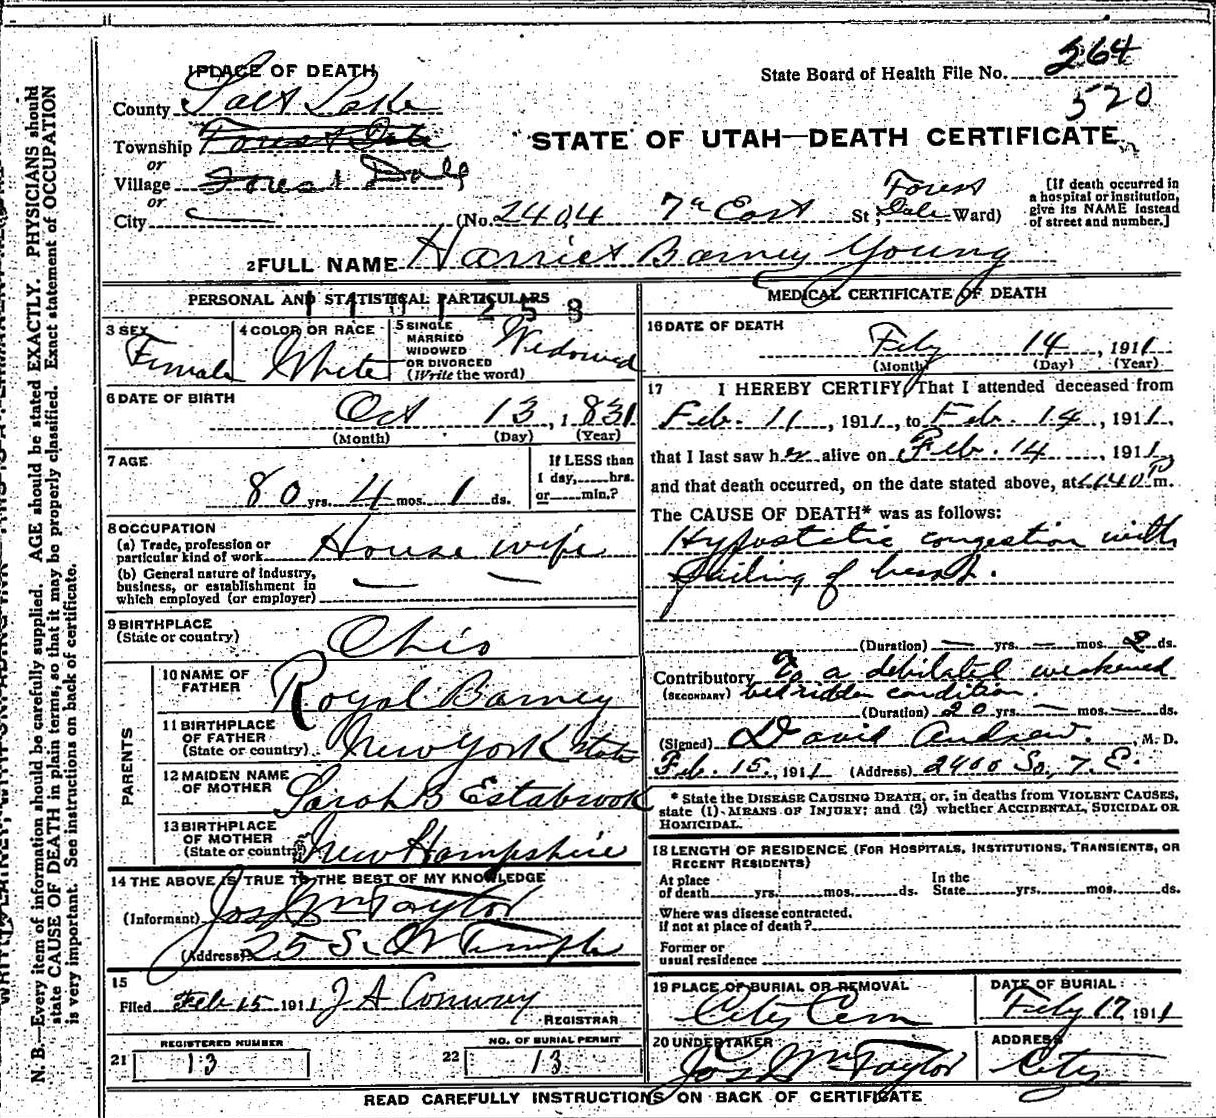 1 PLACE OF DEATH
County Salt Lake
Township Forest Dale
or
Village Forest Dale
or
City
State Board of Health File No. 264
520
STATE OF UTAH—DEATH CERTIFICATE
(No. 2404 7th East St; Forest Dale Ward)
[If death occurred in a hospital or institution, give its NAME instead of street and number.]
2 FULL NAME Harriet Barney Young
PERSONAL AND STATISTICAL PARTICULARS
1101258
3 SEX Female
4 COLOR OR RACE White
5 SINGLE MARRIED WIDOWED OR DIVORCED (Write the word) Widowed
6 DATE OF BIRTH Oct 13, 1831
(Month) (Day) (Year)
7 AGE 80 yrs. 4 mos. 1 ds.
If LESS than 1 day, hrs. or min.?
8 OCCUPATION
(a) Trade, profession or particular kind of work House wife
(b) General nature of industry, business, or establishment in which employed (or employer)
9 BIRTHPLACE (State or country) Ohio
PARENTS
10 NAME OF FATHER Royal Barney
11 BIRTHPLACE OF FATHER (State or country) New York State
12 MAIDEN NAME OF MOTHER Sarah B Estabrook
13 BIRTHPLACE OF MOTHER (State or country) New Hampshire
14 THE ABOVE IS TRUE TO THE BEST OF MY KNOWLEDGE
(Informant) Jos Wm Taylor
(Address) 25 S. W Temple
15 Filed Feb 15 1911 J A Conway
REGISTRAR
REGISTERED NUMBER
21 13
NO. OF BURIAL PERMIT
22 13
MEDICAL CERTIFICATE OF DEATH
16 DATE OF DEATH
Feby 14, 1911
(Month) (Day) (Year)
17 I HEREBY CERTIFY, That I attended deceased from
Feb. 11, 1911, to Feb. 14, 1911,
that I last saw her alive on Feb. 14, 1911,
and that death occurred, on the date stated above, at 6:40 P m.
The CAUSE OF DEATH* was as follows:
Hypostatic congestion with
failing of heart.
(Duration) — yrs. — mos. 2 ds.
Contributory To a debilated weakened
(SECONDARY) bedridden condition.
(Duration) 20 yrs. — mos. — ds.
(Signed) David Andrew, M. D.
Feb. 15, 1911 (Address) 2400 So, 7. E.
* State the DISEASE CAUSING DEATH, or, in deaths from VIOLENT CAUSES, state (1) MEANS OF INJURY; and (2) whether ACCIDENTAL, SUICIDAL OR HOMICIDAL.
18 LENGTH OF RESIDENCE (FOR HOSPITALS, INSTITUTIONS, TRANSIENTS, OR RECENT RESIDENTS)
At place of death yrs. mos. ds. In the State yrs. mos. ds.
Where was disease contracted, if not at place of death?
Former or usual residence
19 PLACE OF BURIAL OR REMOVAL City Cem
DATE OF BURIAL: Feby 17, 1911
20 UNDERTAKER Jos Wm Taylor
ADDRESS City
READ CAREFULLY INSTRUCTIONS ON BACK OF CERTIFICATE
N. B.—Every item of information should be carefully supplied. AGE should be stated EXACTLY. PHYSICIANS should
state CAUSE OF DEATH in plain terms, so that it may be properly classified. Exact statement of OCCUPATION
is very important. See instructions on back of certificate.